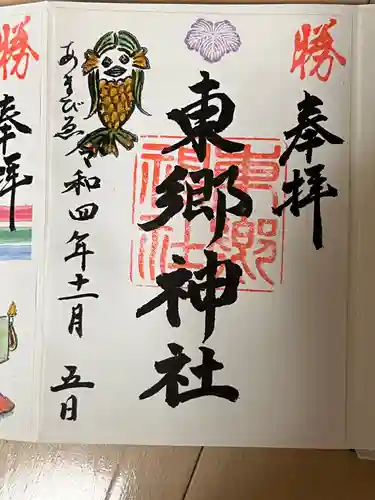 勝
奉拝
東郷神社
東郷
神社
あまびゑ
令和四年十一月五日
勝
奉拝